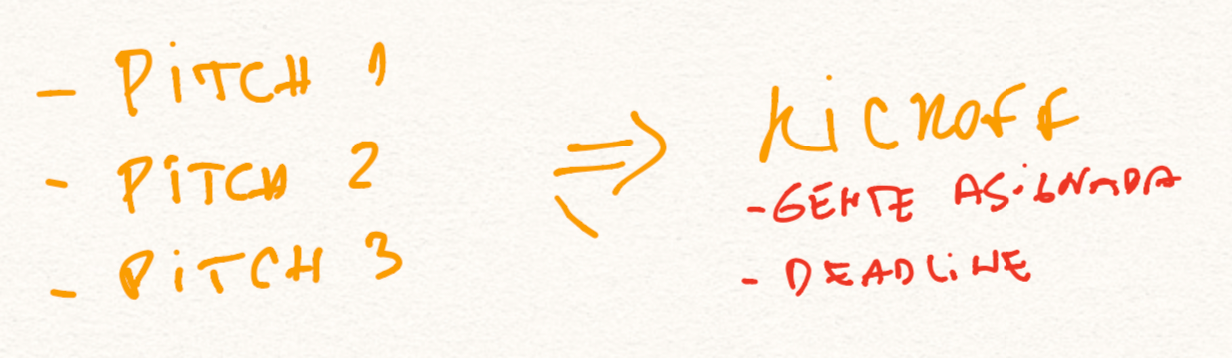 - PiTCH 1
- PiTCH 2
- PiTCH 3
⇒
KiCKOFF
- GENTE ASiGNADA
- DEADLiNE